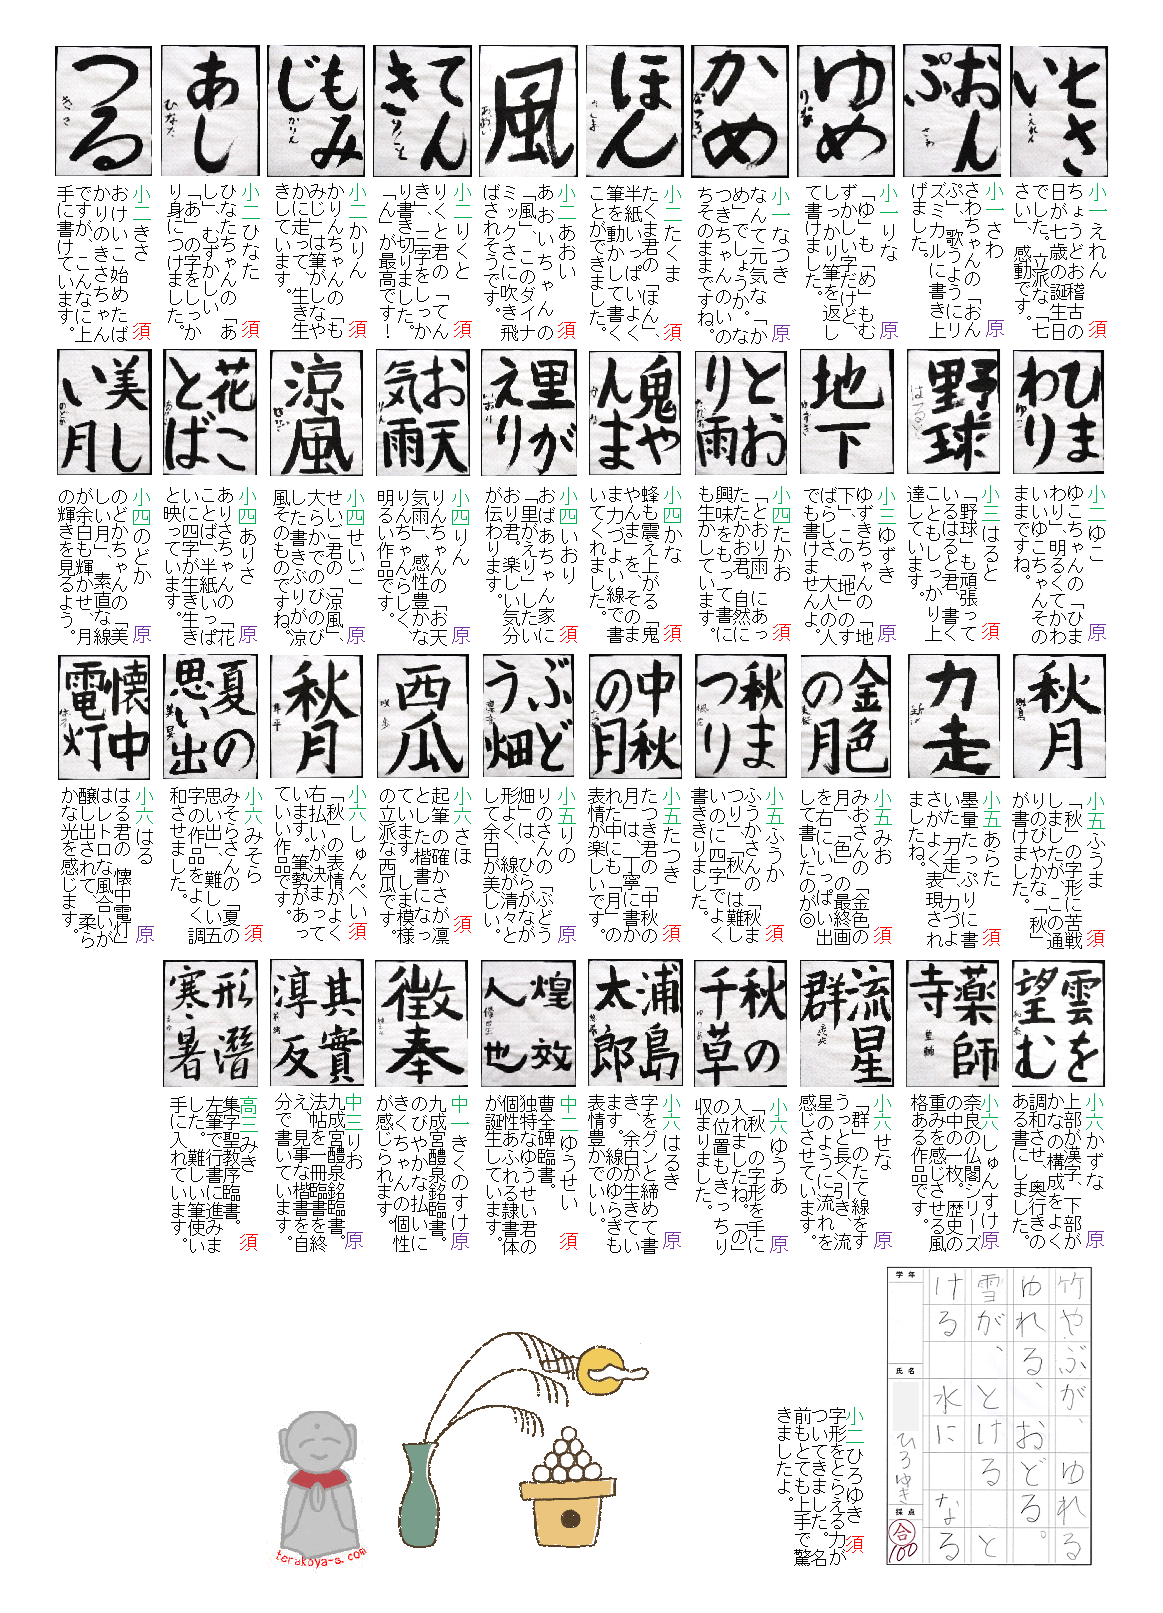 七さ
い
えれん
小一えれん 須
ちょうどお稽古の
日が七歳の誕生日
でした。立派な「七
さい」感動です。
おん
ぷ
さわ
小一さわ 原
さわちゃんの「おん
ぷ」、歌うようにリ
ズミカルに書き上
げました。
ゆめ
りな
小一りな 原
「ゆ」も「め」もむ
ずかしい字だけど、
しっかり筆を返し
て書けました。
かめ
なつき
小一なつき 原
なんて元気な「か
め」でしょうか。な
つきちゃんのいの
ちそのままですね。
ほん
小二たくま 須
たくま君の「ほん」、
半紙いっぱいよく
筆を動かして書く
ことができました。
風
あおい
小二あおい 須
あおいちゃんの
「風」、このダイナ
ミックさに吹き飛
ばされそうです。
てん
き
りくと
小二りくと 須
りくと君の「てん
き」、三字をしっか
り書き切りました。
「ん」が最高です！
もみ
じ
かりん
小二かりん 須
かりんちゃんの「も
みじ」は筆がしなや
かに走って、生き生
きしています。
あし
ひなた
小二ひなた 須
ひなたちゃんの「あ
し」、むずかしい
「あ」の字をしっか
り身につけました。
つる
きさ
小二きさ 須
おけいこ始めたば
かりのきさちゃん
ですが、こんなに上
手に書けています。
ひま
わり
ゆこ
小二ゆこ 原
ゆこちゃんの「ひま
わり」、明るくてかわ
いいゆこちゃんその
ままですね。
野球
はると
小三はると 須
「野球」も頑張って
いるはると君、書く
こともしっかり上
達しています。
地下
ゆずき
小三ゆずき 原
ゆずきちゃんの「地
下」、この「地」のす
ばらしさ、大人の人
でも書けませんよ。
とお
り雨
たかお
小四たかお 原
「とおり雨」にあっ
たたかお君。自然に
興味をもって書に
も生かしています。
鬼や
んま
かな
小四かな 須
蜂も震え上がる「鬼
やんま」を、そのま
ま力づよい線で書
いてくれました。
里が
えり
いおり
小四いおり 須
おばあちゃん家に
「里がえり」したい
おり君。楽しい気分
が伝わります。
お天
気雨
りん
小四りん 原
りんちゃんの「お天
気雨」、感性豊かな
りんちゃんらしく、
明るい作品です。
涼風
せいご
小四せいご 原
せいご君の「涼風」、
大らかでのびのび
した書きぶりが涼
風そのものですね。
花こ
とば
ありさ
小四ありさ 原
ありさちゃんの「花
ことば」、半紙いっぱ
いに四字が生き生き
と映っています。
美し
い月
のどか
小四のどか 原
のどかちゃんの「美
しい月」、素直な線
が余白も輝かせ、月
の輝きを見るよう。
秋月
小五ふうま 須
「秋」の字形に苦戦
しましたが、この通
りのびやかな「秋」
が書けました。
力走
小五あらた 須
墨量たっぷりに書
いた「力走」、力づよ
さがよく表現され
ましたね。
金色
の月
小五みお 須
みおさんの「金色の
月」、「色」の最終画
を右にいっぱい出
して書いたのが◎
秋ま
つり
楓花
小五ふうか 須
ふうかさんの「秋ま
つり」、「秋」は難し
いのに四字でよく
書ききりました。
中秋
の月
小五たつき 須
たつき君の「中秋の
月」は、丁寧に書か
れた中にも「月」の
表情が楽しいです。
ぶど
う畑
小五りの 原
りのさんの「ぶどう
畑」は、ひらがなが
形よく、線が清々と
して余白が美しい。
西瓜
咲歩
小六さほ 須
起筆の確かさが凛
とした楷書になっ
ています。しま模様
の立派な西瓜です。
秋月
小六しゅんぺい 須
「秋」の表情がよく
右払いが決まって
います。筆勢があっ
ていい作品です。
夏の
思い出
美昊
小六みそら 須
みそらさんの「夏の
思い出」、難しい五
字の作品をよく調
和させました。
懐中
電灯
小六はる 原
はる君の「懐中電灯」
はレトロな風合いが
醸し出されて、柔ら
かな光を感じます。
雲を
望む
小六かずな 原
上部が漢字、下部が
かなの構成をよく
調和させ、奥行きの
ある書にしました。
薬師
寺
小六しゅんすけ 原
奈良の仏閣シリーズ
の中の一枚。歴史の
重みを感じさせる風
格ある作品です。
流星
群
小六せな 原
「群」のたて線をす
うっと長く引き、流
星のように流れを
感じさせています。
秋の
千草
ゆうあ
小六ゆうあ 原
「秋」の字形を手に
入れましたね。「の」
の位置もきっちり
収まりました。
浦島
太郎
小六はるき 原
字をグンと締めて書
き、余白が生きてい
ます。線のゆらぎも
表情豊かでいい。
煌效
人也
中二ゆうせい 須
曹全碑臨書。
独特なゆうせい君の
個性あふれる隷書体
が誕生しています。
徴奉
中一きくのすけ 原
九成宮醴泉銘臨書。
のびやかな払いに
きくちゃんの個性
が感じられます。
其實
淳反
中三りお 原
九成宮醴泉銘臨書。
法帖を一冊臨書を終
え、見事な楷書を自
分で書いています。
形潛
寒暑
みゆ
高三みき 須
集字聖教序臨書。
左筆で行書に進みま
した。難しい筆使い
手に入れています。
竹やぶが、ゆれる
ゆれる、おどる。
雪が、とける と
ける 水に なる
学年
氏名
ひろゆき
採点
合
100
小二ひろゆき 須
字形をとらえる力が
ついてきました。名
前もとても上手で驚
きましたよ。
terakoya-s.com